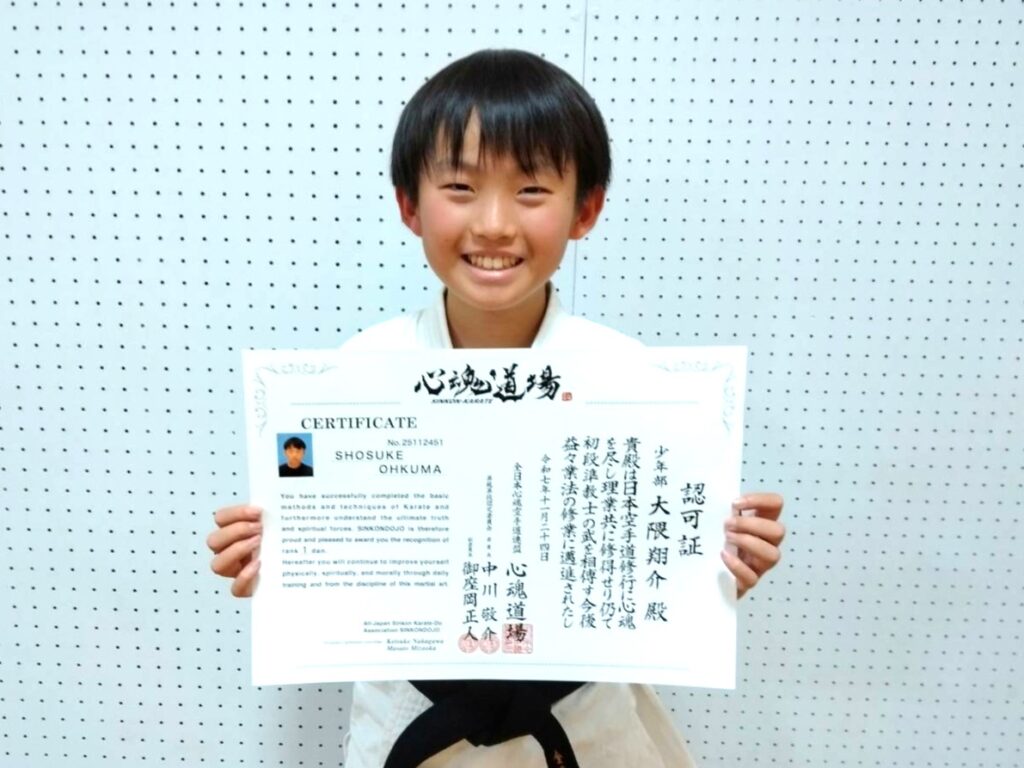 心魂道場
SINKON-KARATE
CERTIFICATE
No.25112451
SHOSUKE
OHKUMA
You have successfully completed the basic
methods and techniques of Karate and
furthermore understand the ultimate truth
and spiritual forces. SINKONDOJO is therefore
proud and pleased to award you the recognition of
rank 1 dan.
Hereafter you will continue to improve yourself
physically, spiritually, and morally through daily
training and from the discipline of this martial art.
All-Japan Sinkon Karate-Do
Association SINKONDOJO.
Keisuke Nakagawa
Masato Mizaoka
認可証
少年部 大隈翔介 殿
貴殿は日本空手道修行に心魂
を尽し理業共に修得せり仍て
初段準教士の武を相傳す今後
益々業法の修業に邁進されたし
令和七年十一月二十四日
全日本心魂空手道連盟 心魂道場
中川敬介
御座岡正人